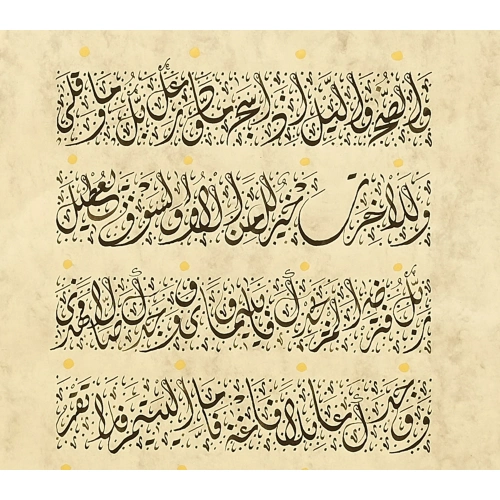 والضحى والليل اذا سجى ما ودعك ربك وما قلى
وللاخرة خير لك من الاولى ولسوف يعطيك
ربك فترضى الم يجدك يتيما فاوى ووجدك ضالا فهدى
ووجدك عائلا فاغنى فاما اليتيم فلا تقهر